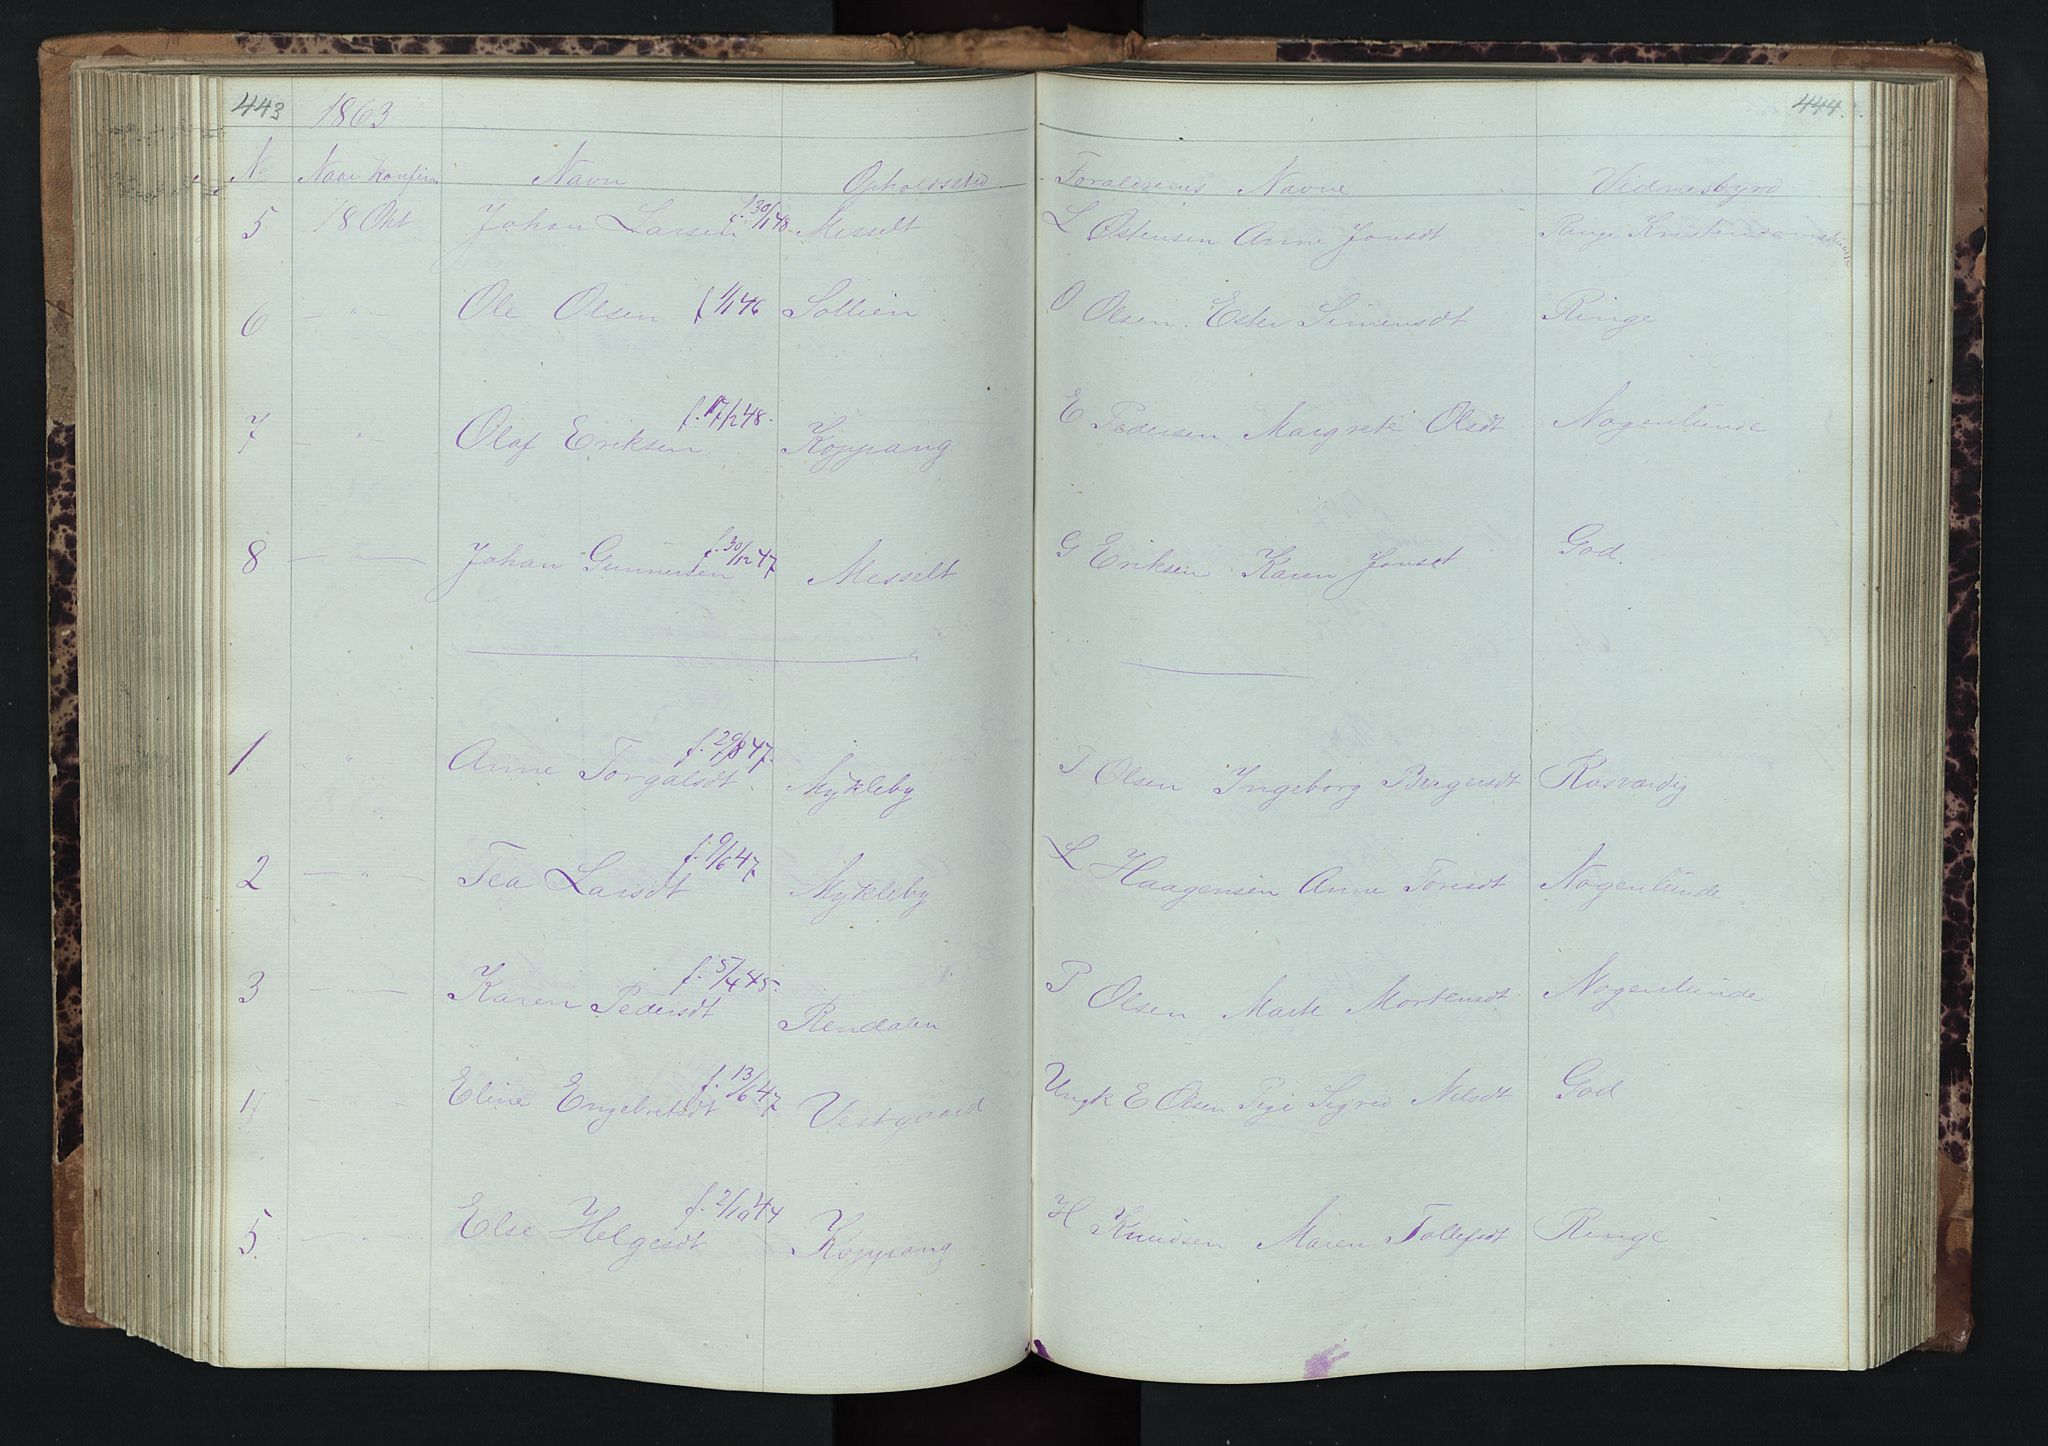 443 1863 444
No Naar Konfirm Navn Opholdssted Foraeldrenes Navne Vidnesbyrd
5 18 Okt Johan Larsen f. 30/1 48 Messelt L Østensen Anne Jonsdt Ringe Kristendomskundsk
6 — " — Ole Olsen f 1/1 46 Sollien O Olsen. Ester Simensdt Ringe
7 — " — Olaf Eriksen f. 17/2 48. Koppang E Pedersen Margrete Olsdt Nogenlunde
8 — " — Johan Gunnersen f. 30/12 47 Messelt G Eriksen Karen Jonsdt God.
1. — " — Anne Torgalsdt f. 29/8 47. Mykleby T Olsen Ingeborg Bergersdt Rosværdig
2 — " — Tea Larsdt f. 9/6 47 Mykleby L Haagensen Anne Toresdt Nogenlunde
3 — " — Karen Pedersdt f. 5/4 45. Rendalen P Olsen Marte Mortensdt Nogenlunde
4 — " — Eline Engebretsdt f. 13/6 47 Vestgaard Ungk E Olsen Pige Sigrid Nilsdt God
5. — " — Else Helgesdt f. 2/10 44 Koppang H Knudsen Maren Tollefsdt Ringe